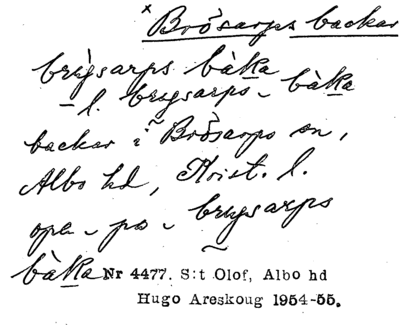 × Brösarps backar
brỳsarps bàka
– l. brysarps - bàka
backar i Brösarps sn,
Albo hd, Krist. l.
opa - po - brysarps
bàka Nr 4477. S:t Olof, Albo hd
Hugo Areskoug 1954-55.